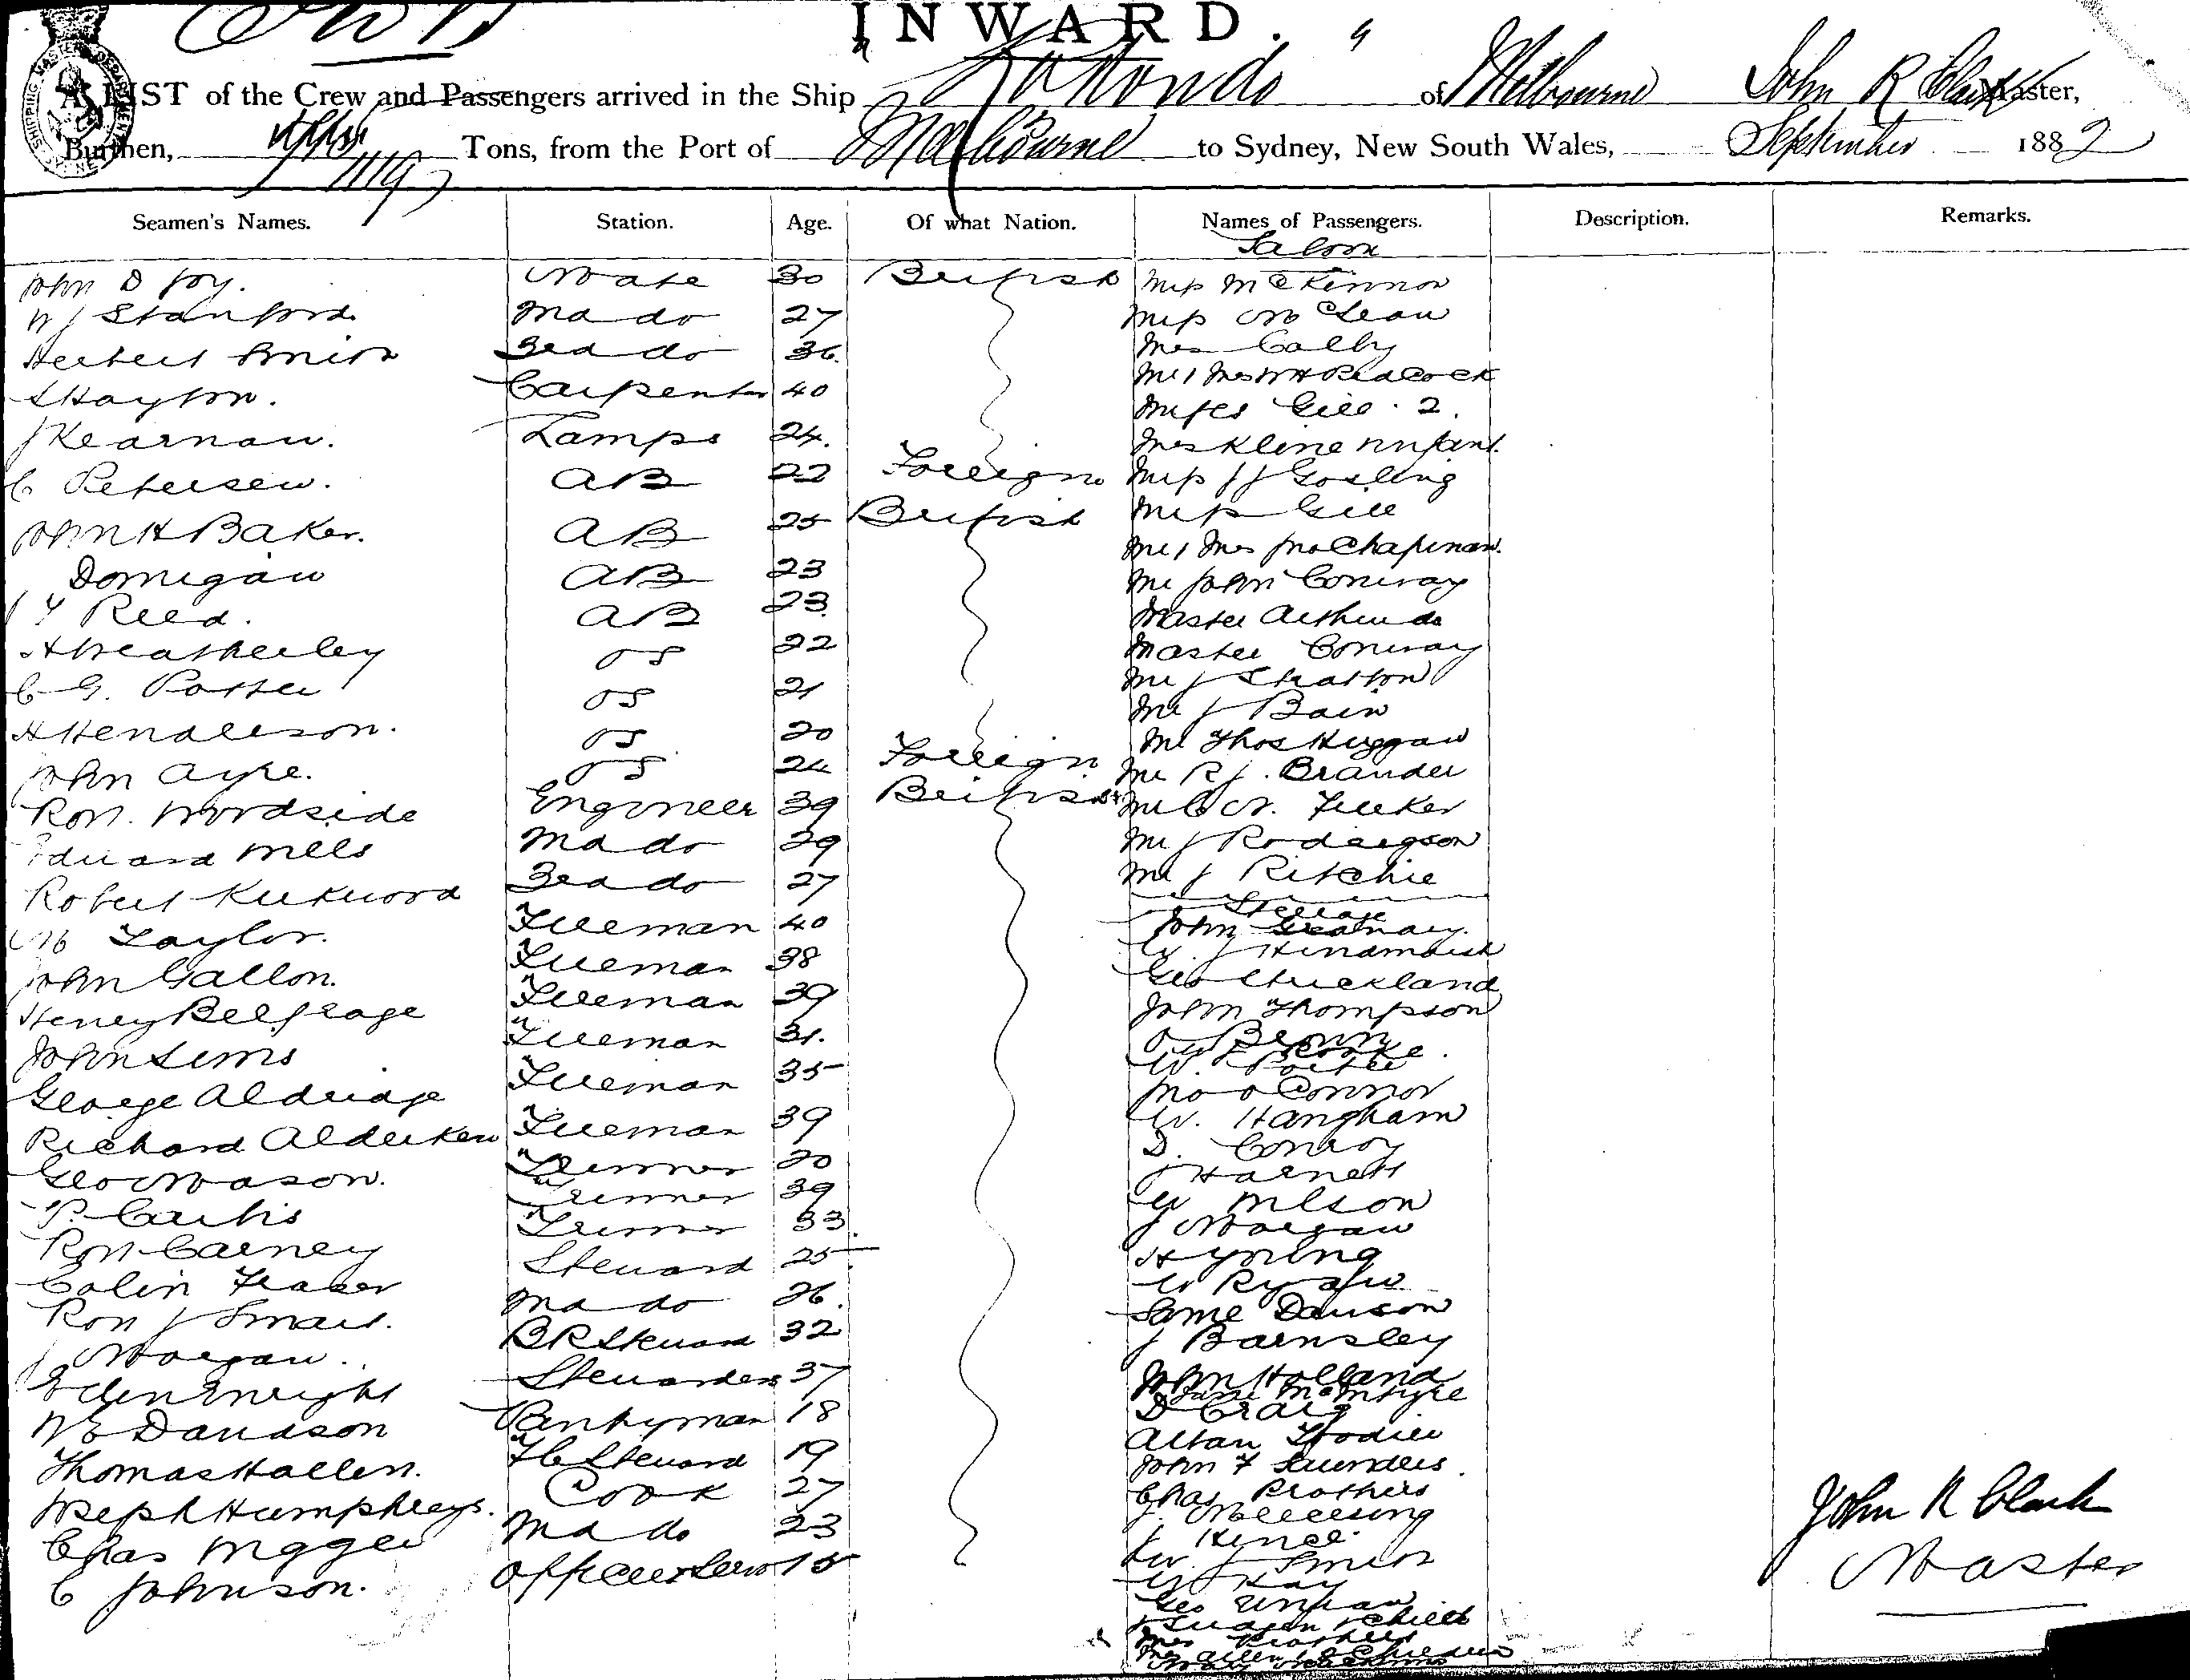 INWARD.
A LIST of the Crew and Passengers arrived in the Ship " Rotondo " of Melbourne John R Clark Master,
Burthen, 1119 Tons, from the Port of Melbourne to Sydney, New South Wales, September 1882
Seamen's Names. Station. Age. Of what Nation. Names of Passengers. Description. Remarks.
Saloon
John D Joy. Mate 30 British Miss McKinnon
W J Stanford 2nd do 27 Miss McLean
Herbert Smith 3rd do 36. Mrs Colby
Hayton. Carpenter 40 Mr & Mrs W H Peacock
J Kearnan. Lamps 24. Misses Gill 2.
Mrs Kline & Infant.
C Petersen. AB 22 Foreign Miss Gosling
John H Baker. AB 25 British Miss Gill
Mr & Mrs Jno Chapman.
Domigan AB 23 Mr John Conway
Reed. AB 23 Master Arthur do
A Weatherley OS 22 Master Conway
C G. Potter OS 21 Mr J Stratton
Mr J Bain
H Henderson. OS 20 Mr Thos Huggan
John Ayre. OS 24 Foreign Mr R J. Brander
Rob. Woodside Engineer 39 British Mr C N. Tucker
Edward Mills 2nd do 29 Mr J Rodergson
Robert Kirkwood 3rd do 27 Mr J Ritchie
Steerage
M Taylor. Fireman 40 John
W. J Hindmarsh
John Gallon. Fireman 38 Geo Stuckland
Henry Belfrage Fireman 39 John Thompson
John Sims Fireman 31. Brown
W. Porter
George Aldridge Fireman 35 Jno O Connor
Richard Alderken Fireman 39 W. Hangham
D. Conroy
Geo Mason. Trimmer 20 J Harnett
P. Curtis Trimmer 39 W Wilson
Rob Carney Trimmer 33 J Morgan
Colin Fraser Steward 25 H Young
W Ryan
Rob J Smart. 2nd do 26. Dawson
J Morgan. BR Steward 32 J Barnsley
Ellen Wright Stewardess 37 John Holland
Jane McIntyre
W E Davidson Pantryman 18 D Craig
Thomas Hallen. FC Steward 19 John F Saunders.
Joseph Humphreys. Cook 27 Chas Prothers
Chas 2nd do 23 J.
C Johnson. Officers Serv 15 W. J Smith
W Kay
Geo
Mrs Prothers
Mrs Allen & 2 Children
John R Clark
Master